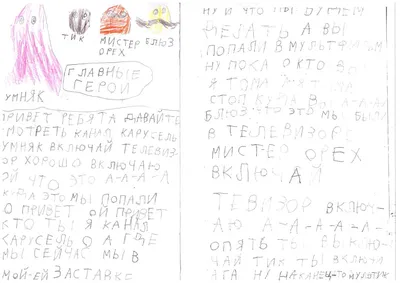 ТИК
МИСТЕР ОРЕХ
БЛЮЗ
ГЛАВНЫЕ ГЕРОИ
УМНЯК
ПРИВЕТ РЕБЯТА ДАВАЙТЕ
СМОТРЕТЬ КАНАЛ КАРУСЕЛЬ
УМНЯК ВКЛЮЧАЙ ТЕЛЕВИЗ-
ОР ХОРОШО ВКЛЮЧАЮ
ОЙ ЧТО ЭТО А-А-А-А
КУДА ЭТО МЫ ПОПАЛИ
О ПРИВЕТ ОЙ ПРИВЕТ
КТО ТЫ Я КАНАЛ
КАРУСЕЛЬ О А ГДЕ
МЫ СЕЙЧАС МЫ В
МОЙ-ЕЙ ЗАСТАВКЕ
НУ И ЧТО
ДЕЛАТЬ А ВЫ
ПОПАЛИ В МУЛЬТФИЛЬМ
НУ ПОКА О КТО ВЫ
Я ТОМА
СТОП КУДА ВЫ А-А-А-А
БЛЮЗ ЧТО ЭТО МЫ БЫЛИ
В ТЕЛЕВИЗОРЕ
МИСТЕР ОРЕХ
ВКЛЮЧАЙ
ТЕВИЗОР ВКЛЮЧ-
АЮ А-А-А-А-А
ОПЯТЬ ТЫ ВКЛЮ-
ЧАЙ ТИК ТЫ ВКЛЮЧ
АГА НУ НАКАНЕЦ-ТО МУЛЬТИК